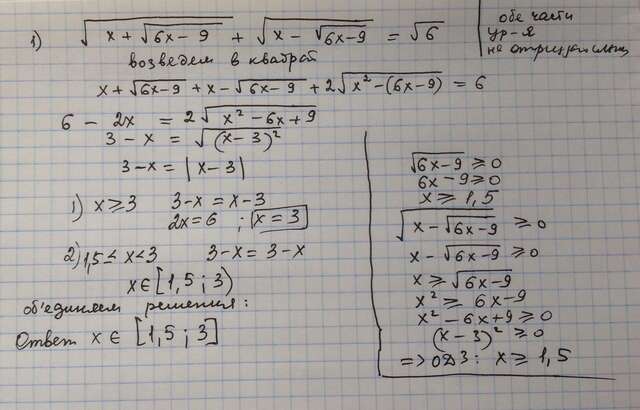 1) √(x + √(6x - 9)) + √(x - √(6x-9)) = √6
обе части
ур-я
возведем в квадрат
x + √(6x-9) + x - √(6x-9) + 2√(x² - (6x-9)) = 6
6 - 2x = 2√(x² - 6x + 9)
3 - x = √((x-3)²)
3 - x = |x - 3|
1) x ≥ 3 3 - x = x - 3
2x = 6 ; x = 3
2) 1,5 ≤ x < 3 3 - x = 3 - x
x ∈ [1,5 ; 3)
об'единяем решения:
Ответ x ∈ [1,5 ; 3]
√(6x-9) ≥ 0
6x - 9 ≥ 0
x ≥ 1,5
√(x - √(6x-9)) ≥ 0
x - √(6x-9) ≥ 0
x ≥ √(6x-9)
x² ≥ 6x-9
x² - 6x + 9 ≥ 0
(x-3)² ≥ 0
=> ОДЗ: x ≥ 1,5